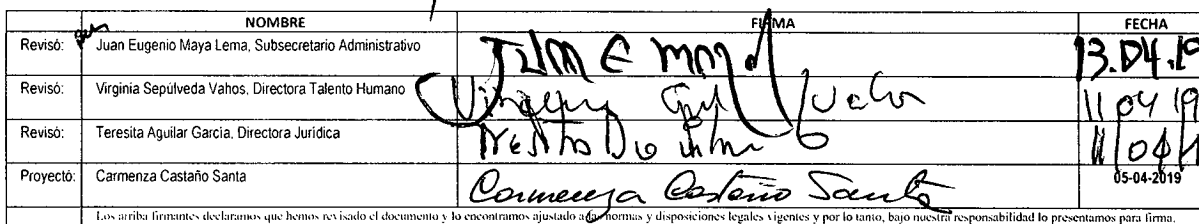 NOMBRE FIRMA FECHA
Revisó: Juan Eugenio Maya Lema, Subsecretario Administrativo 13.04.19
Revisó: Virginia Sepúlveda Vahos, Directora Talento Humano 11 04 19
Revisó: Teresita Aguilar García, Directora Jurídica
Proyectó: Carmenza Castaño Santa Carmenza Castaño Santa 05-04-2019
Los arriba firmantes declaramos que hemos revisado el documento y lo encontramos ajustado a las normas y disposiciones legales vigentes y por lo tanto, bajo nuestra responsabilidad lo presentamos para firma.